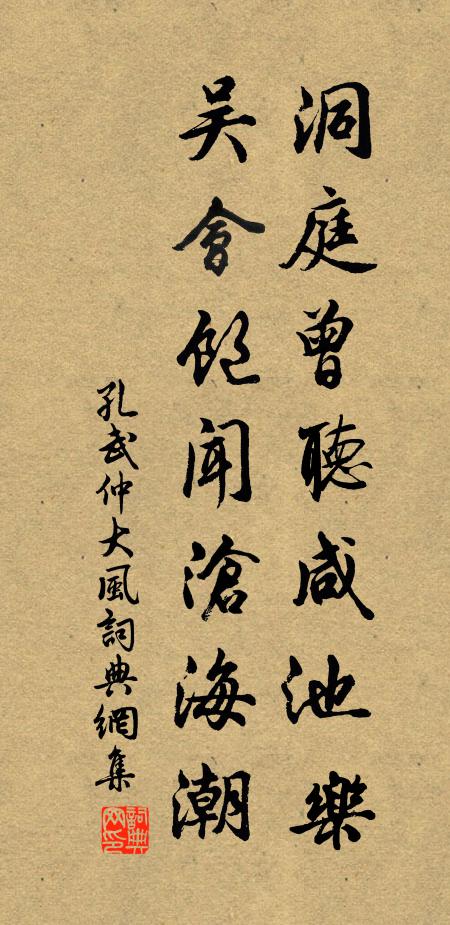 洞庭曾聽咸池樂
吴會飽聞滄海潮
孔武仲大風詞典網集
詞典網印